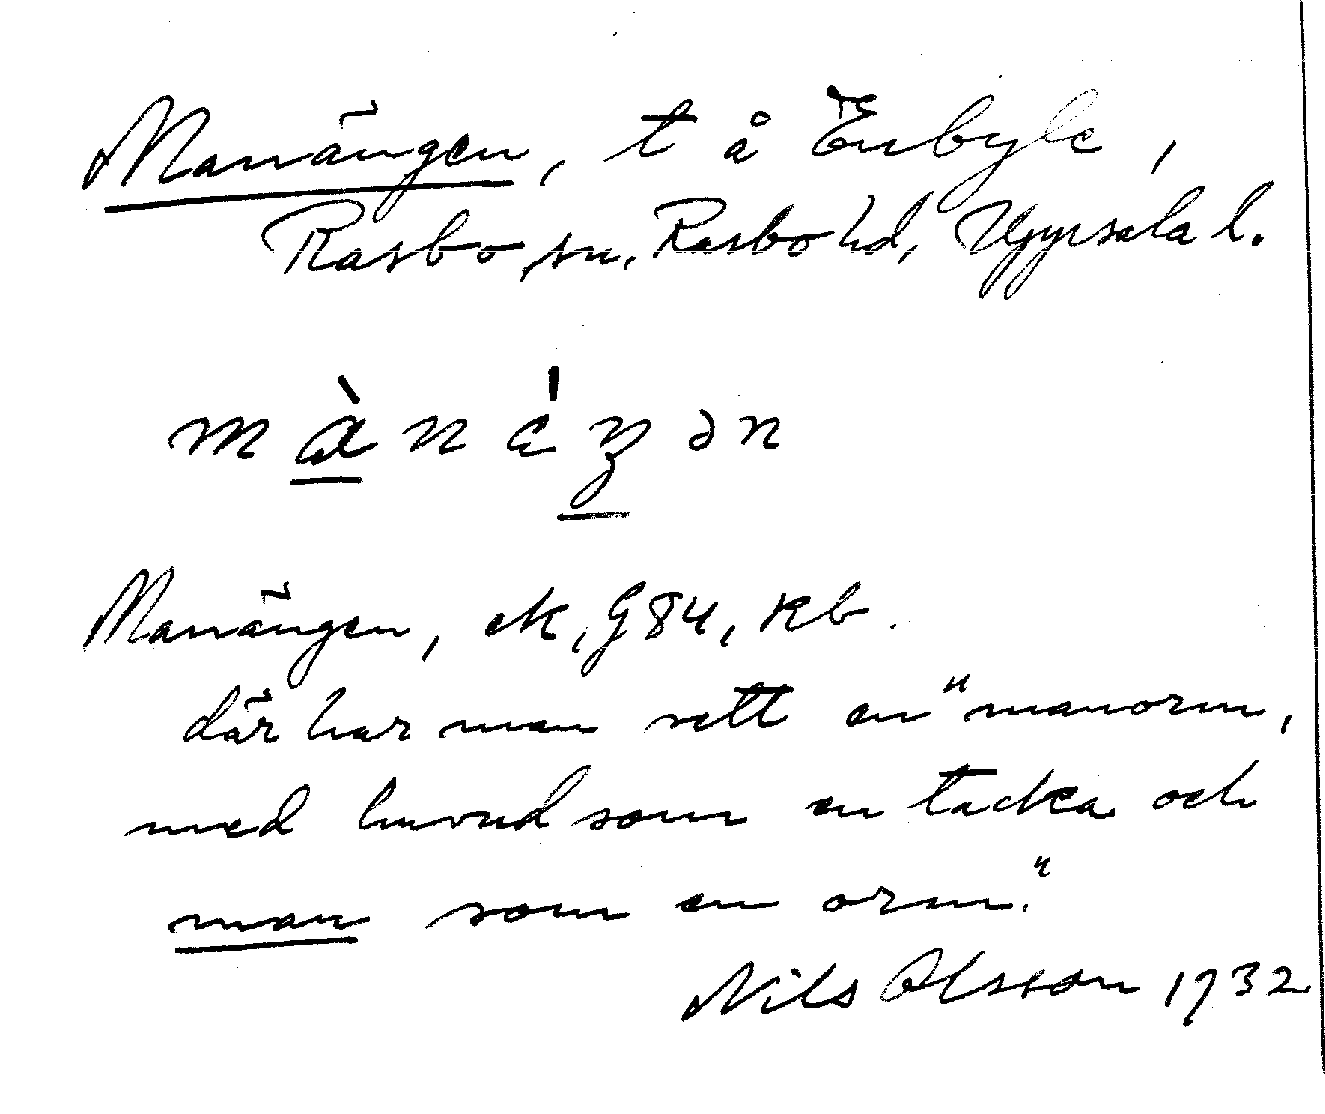 Manängen, t å Enbyle,
Rasbo sn. Rasbo hd, Uppsala l.
Manängen, ek, G84, Kb.
där har man sett en "manorm,
med huvud som en tacka och
man som en orm."
Nils Olsson 1932